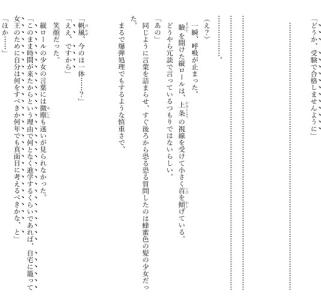 「どうか、受験で合格しませんように」
………………………………………………………………
………………………………………………………………
………………………………………………………………
………………………………。
（え？）
一瞬、呼吸が止まった。
瞼を開けた縦ロールは、上条の視線を受けて小さく首を傾げている。
どうやら冗談で言っているつもりではないらしい。
「あの」
同じように言葉を詰まらせ、すぐ後ろから恐る恐る質問したのは蜂蜜色の髪の少女だっ
た。
まるで爆弾処理でもするような慎重さで、
「帆風、今のは一体……？」
「ええ、ですから」
笑顔だった。
縦ロールの少女の言葉には微塵も迷いが見られなかった。
「このまま時間が来たからという理由で何となく進学するくらいであれば、自宅に籠って
女王のために自分は何をすべきか何年でも真面目に考えるべきかな、と」
「ほか……」